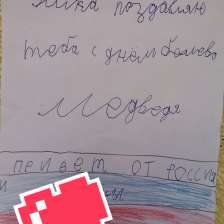 Ника поздавляю
тебя с днём бальшево
Медведя
ПРИВЕТ ОТ РОССИИ